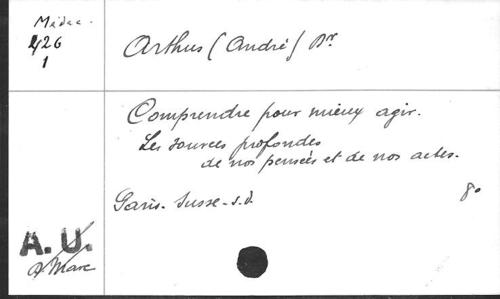 Médec.
426
1
Arthus (André) Dr
Comprendre pour mieux agir.
Les sources profondes
de nos pensées et de nos actes.
Paris. Susse. s.d.
8o
A.U.
Marc